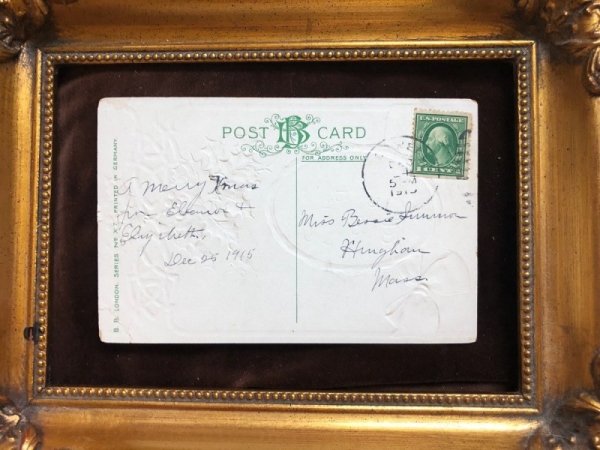 POST B CARD
FOR ADDRESS ONLY
U.S. POSTAGE
1 CENT 1
5
1915
A Merry Xmas
from Eleanor &
Elizabeth.
Dec 25 1915
Miss Bessie
Hingham
Mass.
B. B. LONDON. SERIES PRINTED IN GERMANY